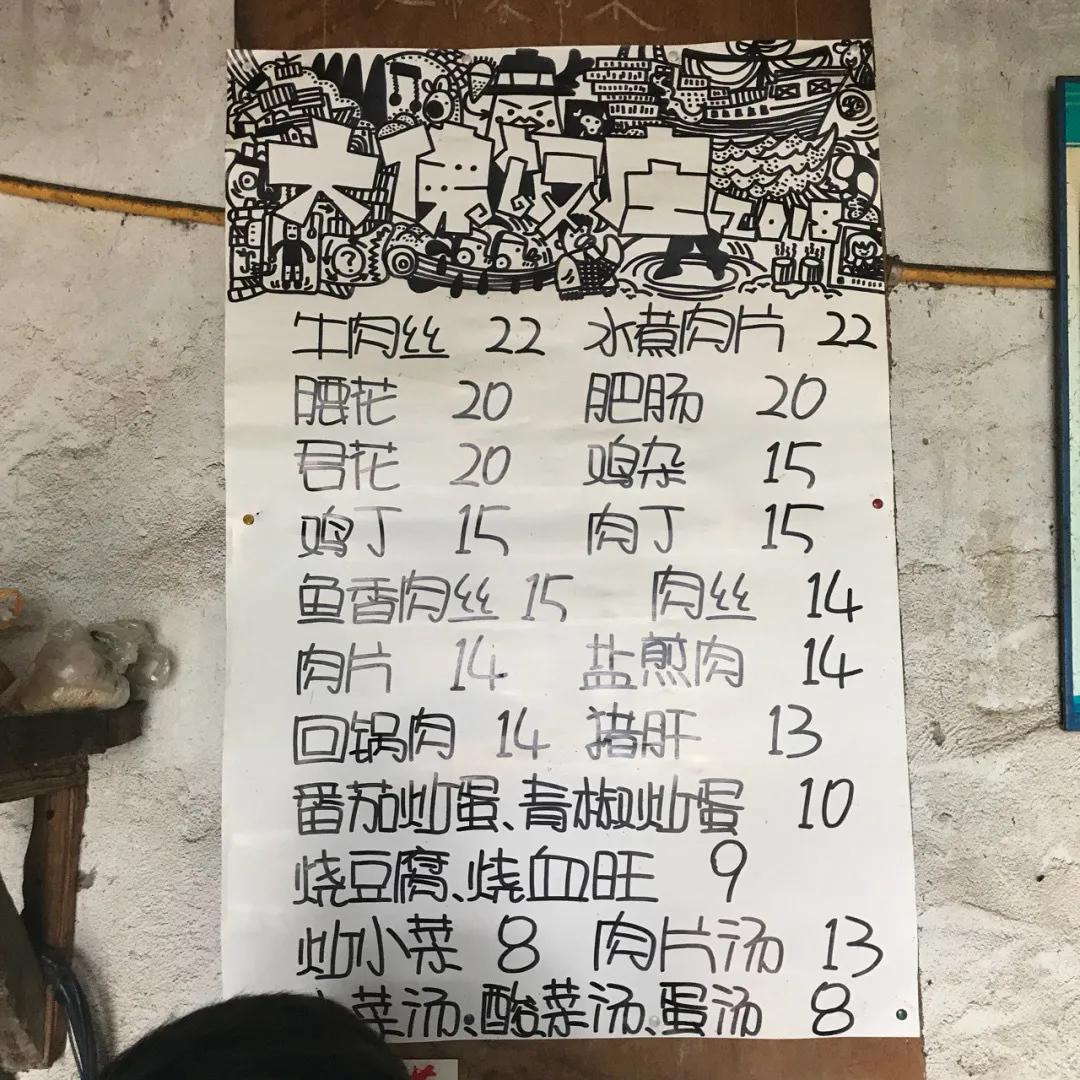 牛肉丝 22 水煮肉片 22
腰花 20 肥肠 20
君花 20 鸡杂 15
鸡丁 15 肉丁 15
鱼香肉丝 15 肉丝 14
肉片 14 盐煎肉 14
回锅肉 14 猪肝 13
番茄炒蛋、青椒炒蛋 10
烧豆腐、烧血旺 9
炒小菜 8 肉片汤 13
菜汤、酸菜汤、蛋汤 8